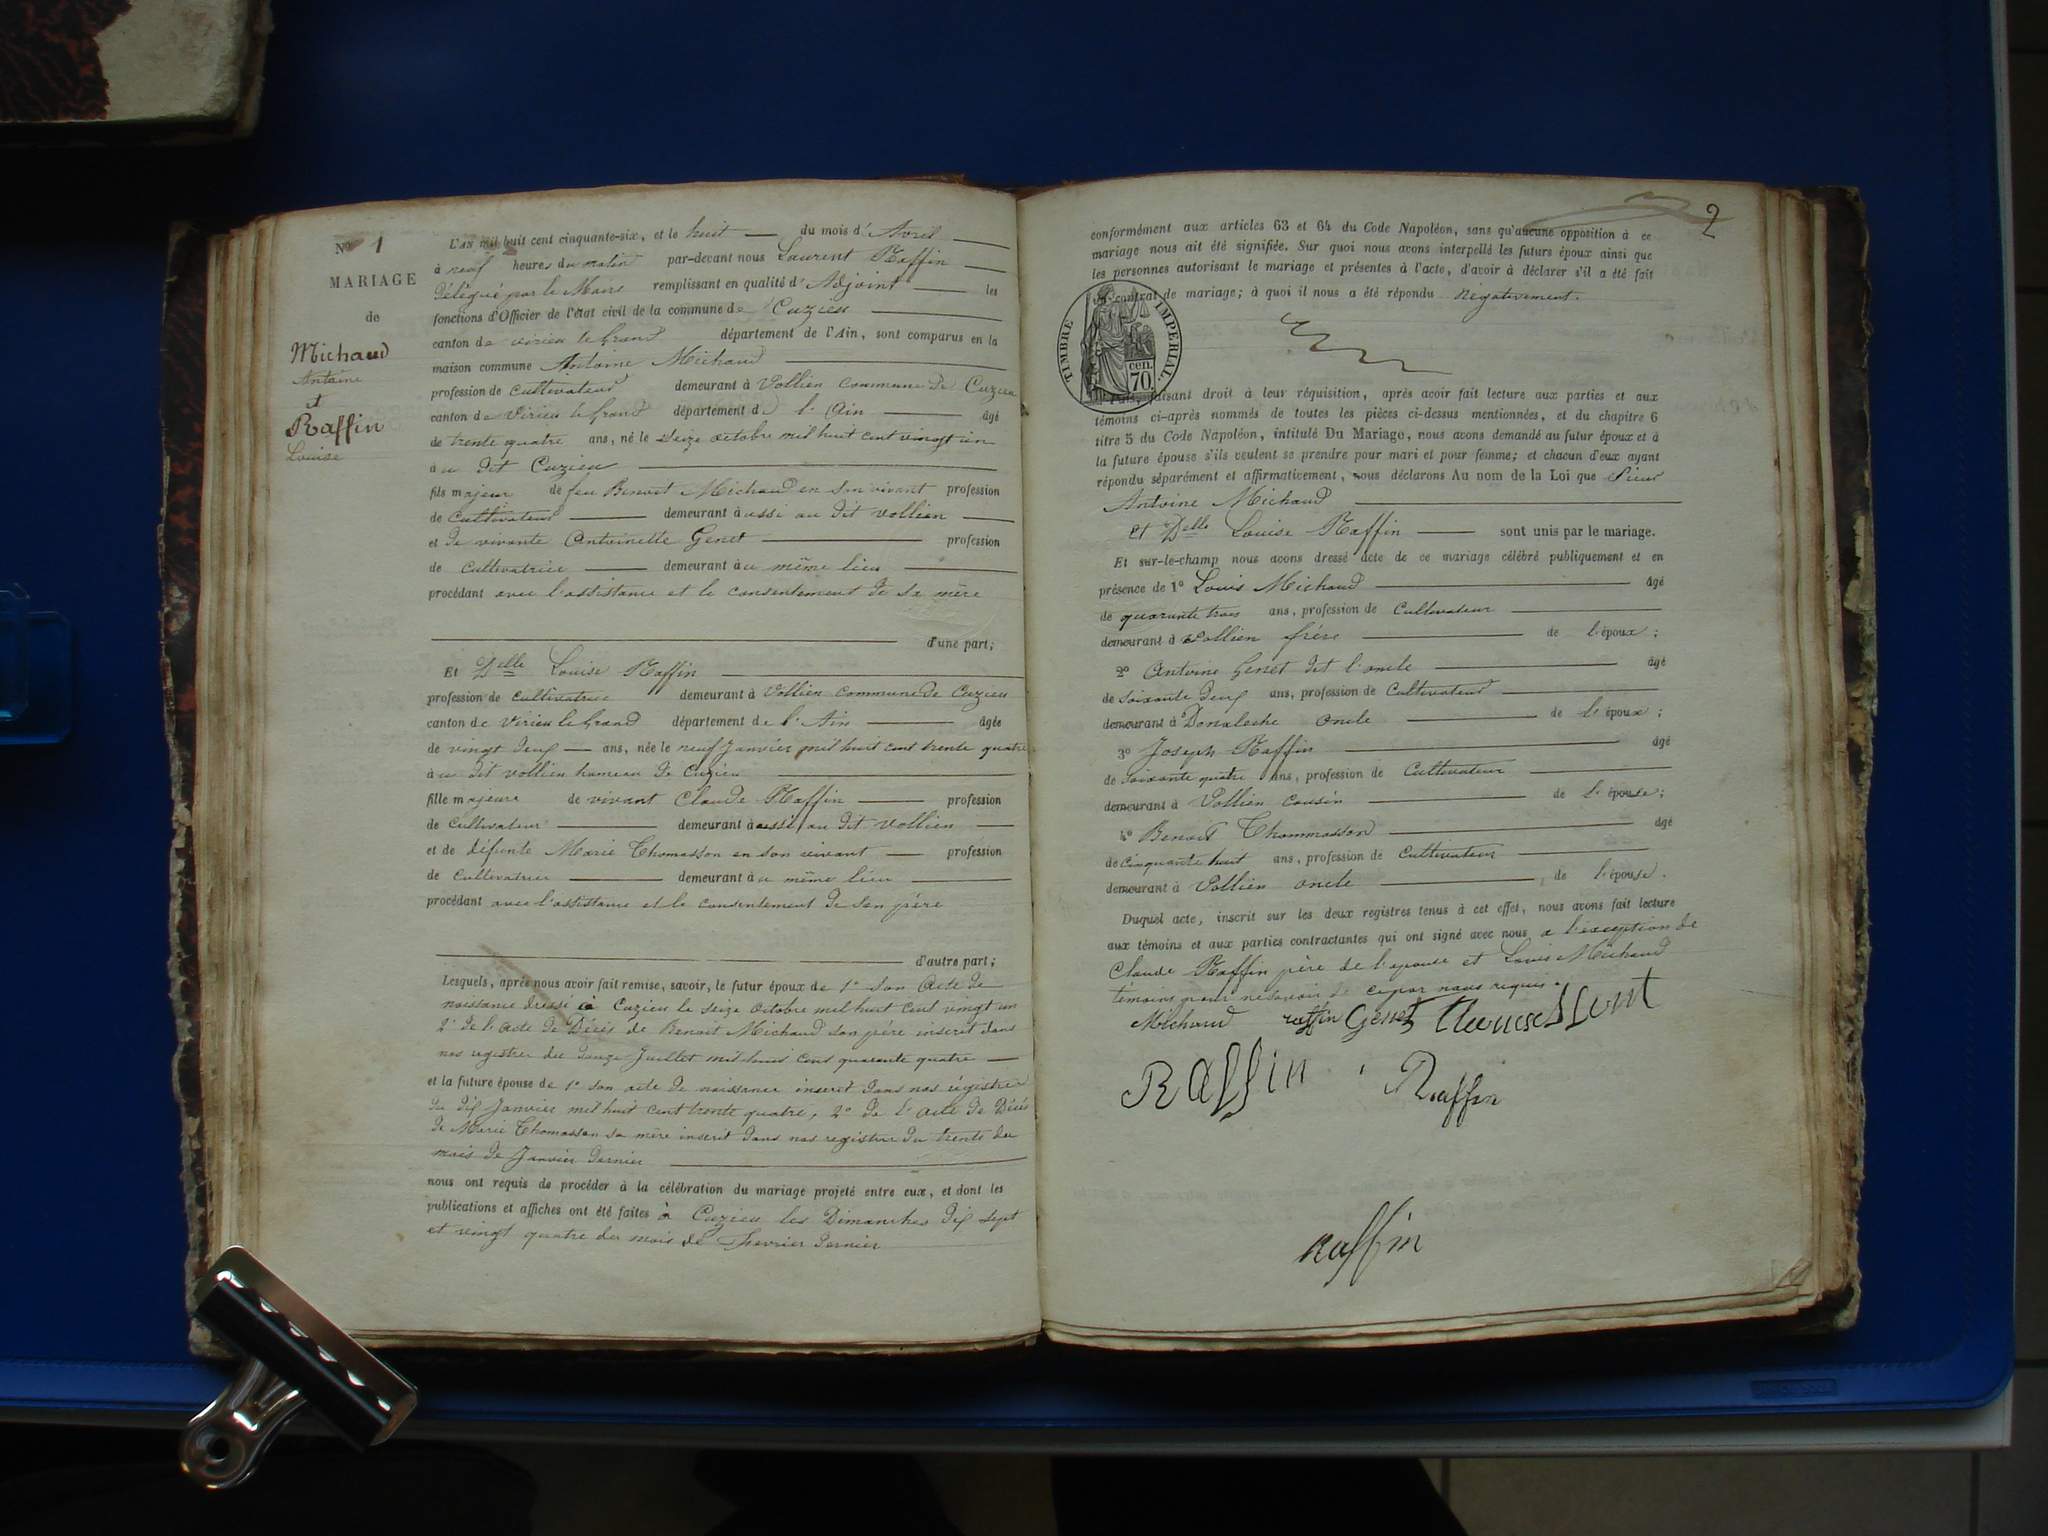 N° 1
MARIAGE
de
Michaud
Antoine
et
Raffin
Louise
L'AN mil huit cent cinquante-six, et le huit du mois d'Avril
à neuf heures du matin par-devant nous Laurent Raffin
délégué par le Maire remplissant en qualité d'Adjoint les
fonctions d'Officier de l'état civil de la commune de Cuzieu
canton de virieu le Grand département de l'Ain, sont comparus en la
maison commune Antoine Michaud
profession de Cultivateur demeurant à Vollien Commune de Cuzieu
canton de Virieu le Grand département de l'Ain âgé
de trente quatre ans, né le seize octobre mil huit cent vingt un
à u dit Cuzieu
fils majeur de feu Benoit Michaud en son vivant profession
de Cultivateur demeurant à ussi au dit Vollien
et de vivante Antoinette Genet profession
de Cultivatrice demeurant à u même lieu
procédant avec l'assistance et le consentement de sa mère
d'une part;
Et Delle Louise Raffin
profession de cultivatrice demeurant à Vollien Commune de Cuzieu
canton de Virieu le Grand département de l'Ain âgée
de vingt deux ans, née le neuf Janvier mil huit cent trente quatre
à u dit vollien hameau de Cuzieu
fille majeure de vivant Claude Raffin profession
de Cultivateur demeurant à aussi au dit Vollien
et de défunte Marie Thomasson en son vivant profession
de Cultivatrice demeurant à u même lieu
procédant avec l'assistance et le consentement de son père
d'autre part;
Lesquels, après nous avoir fait remise, savoir, le futur époux de 1° son Acte de
naissance dressé à Cuzieu le seize Octobre mil huit cent vingt un
2° de l'acte de Décès de Benoit Michaud son père inscrit dans
nos registres du Juillet mil huit cent quarante quatre
et la future épouse de 1° son acte de naissance inscrit dans nos régistres
du dix Janvier mil huit cent trente quatre, 2° de l'acte de Décès
de Marie Thomasson sa mère inscrit dans nos registres du trente du
mois de Janvier dernier
nous ont requis de procéder à la célébration du mariage projeté entre eux, et dont les
publications et affiches ont été faites à Cuzieu les Dimanches dix sept
et vingt quatre du mois de Fevrier dernier
2
conformément aux articles 63 et 64 du Code Napoléon, sans qu'aucune opposition à ce
mariage nous ait été signifiée. Sur quoi nous avons interpellé les futurs époux ainsi que
les personnes autorisant le mariage et présentes à l'acte, d'avoir à déclarer s'il a été fait
un contrat de mariage; à quoi il nous a été répondu négativement.
TIMBRE IMPÉRIAL.
cen.
70.
Puis, faisant droit à leur réquisition, après avoir fait lecture aux parties et aux
témoins ci-après nommés de toutes les pièces ci-dessus mentionnées, et du chapitre 6
titre 5 du Code Napoléon, intitulé Du Mariage, nous avons demandé au futur époux et à
la future épouse s'ils veulent se prendre pour mari et pour femme; et chacun d'eux ayant
répondu séparément et affirmativement, nous déclarons Au nom de la Loi que Sieur
Antoine Michaud
et Delle Louise Raffin sont unis par le mariage.
Et sur-le-champ nous avons dressé acte de ce mariage célébré publiquement et en
présence de 1° Louis Michaud âgé
de quarante trois ans, profession de Cultivateur
demeurant à Vollien frère de l'époux;
2° Antoine Genet dit l'oncle âgé
de soixante deux ans, profession de Cultivateur
demeurant à oncle de l'époux;
3° Joseph Raffin âgé
de soixante quatre ans, profession de Cultivateur
demeurant à Vollien cousin de l'épouse;
4° Benoit Thommasson âgé
de cinquante huit ans, profession de Cultivateur
demeurant à Vollien oncle de l'épouse.
Duquel acte, inscrit sur les deux registres tenus à cet effet, nous avons fait lecture
aux témoins et aux parties contractantes qui ont signé avec nous a l'exception de
Claude Raffin père de l'epouse et Louis Michaud
témoins pour ne savoir de ce par nous requis.
Michaud raffin Genet
Raffin Raffin
Raffin